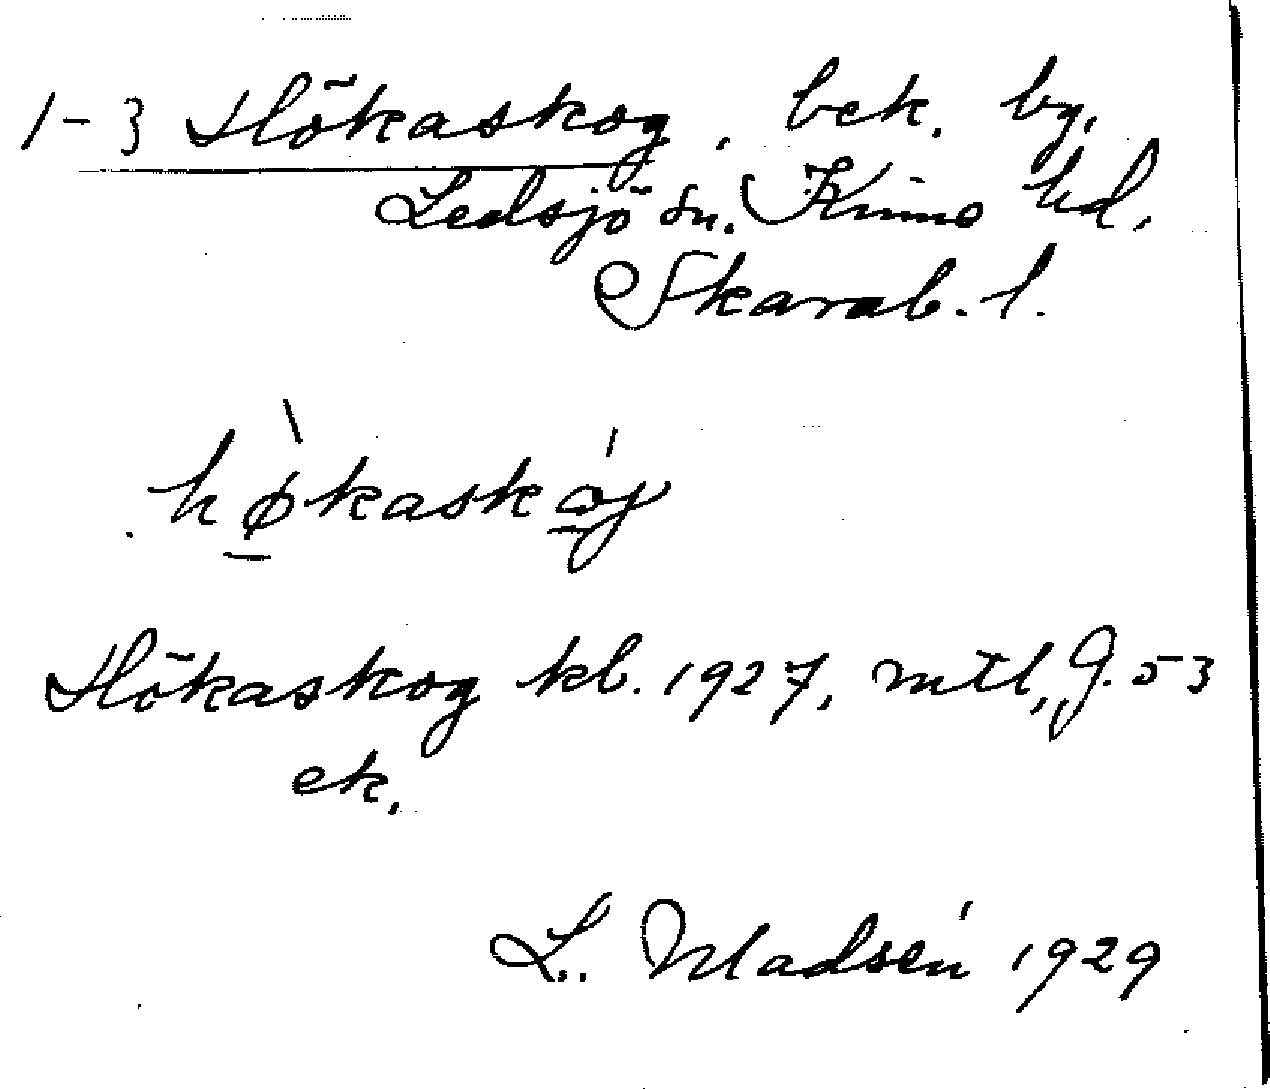 1-3 Hökaskog, bek. by,
Ledsjö sn. Kinne hd.
Skarab. l.
hø̀kaskój
Hökaskog kb. 1927, mtl, J. 53
ek.
L. Madsén 1929